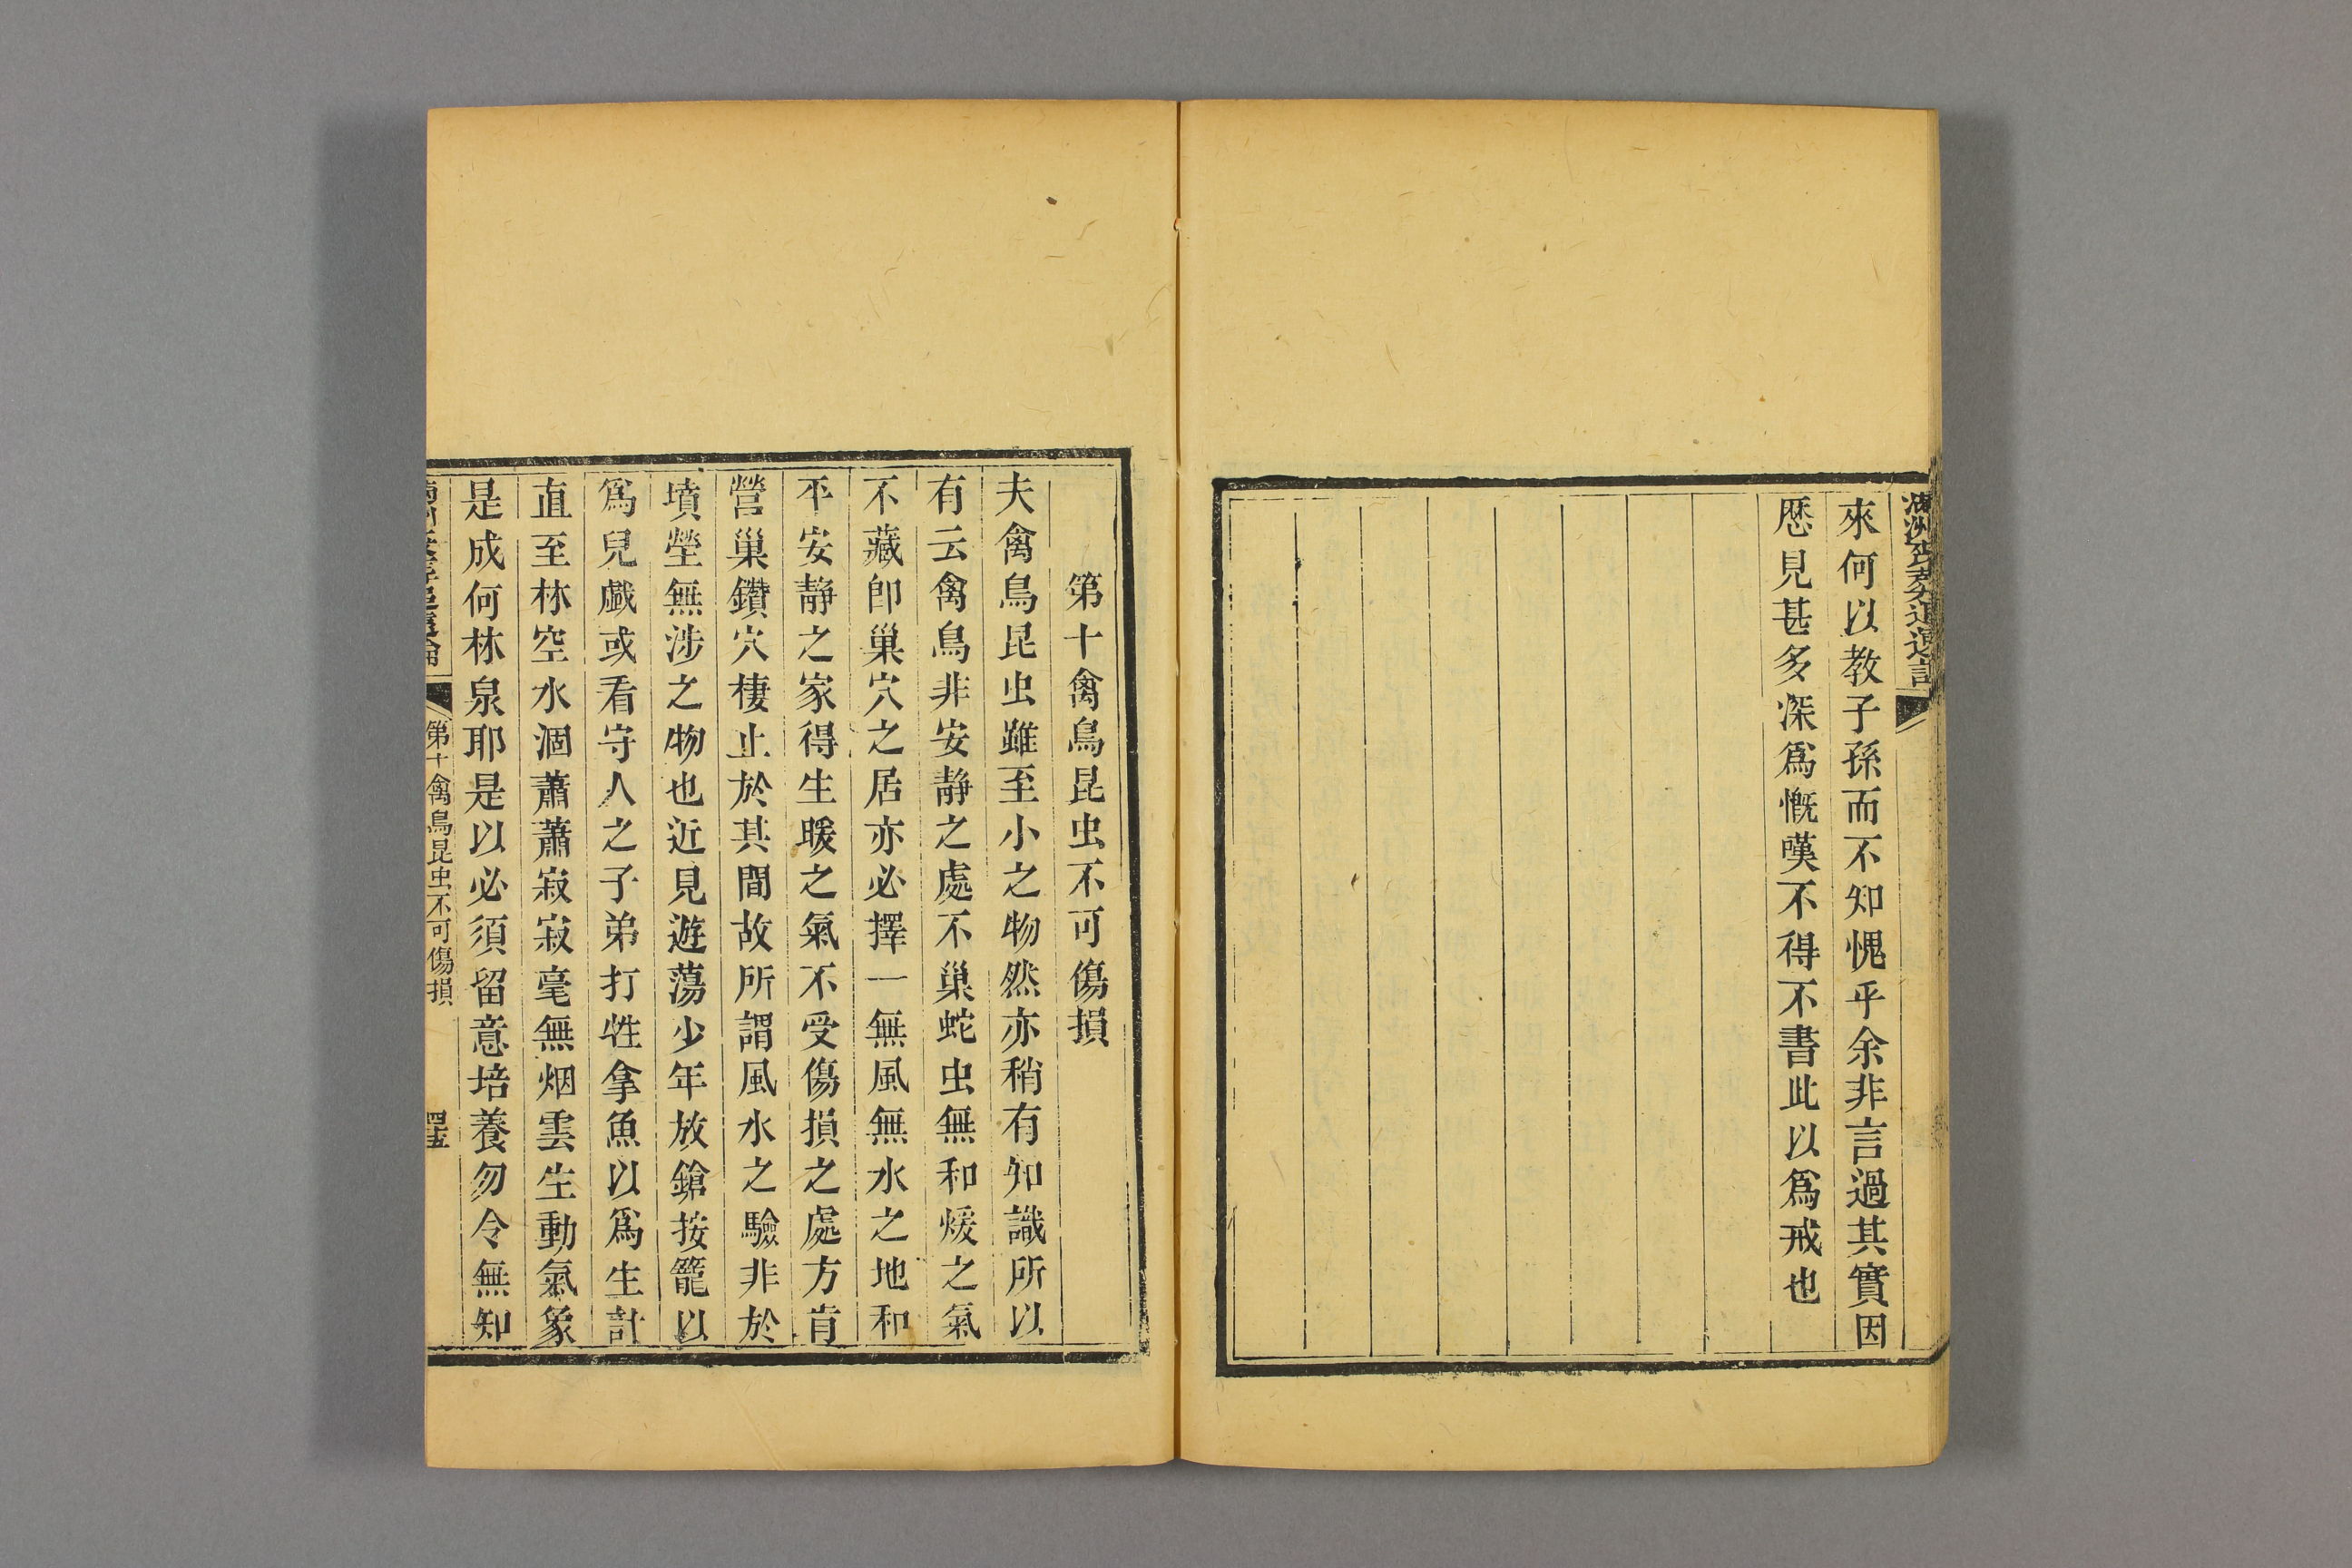 來何以教子孫而不知愧乎余非言過其實因
厯見甚多深爲慨嘆不得不書此以爲戒也
第十禽鳥昆虫不可傷損
夫禽鳥昆虫雖至小之物然亦稍有知識所以
有云禽鳥非安静之處不巢蛇虫無和煖之氣
不藏卽巢穴之居亦必擇一無風無水之地和
平安静之家得生暖之氣不受傷損之處方肯
營巢鑽穴棲止於其間故所謂風水之驗非於
墳塋無涉之物也近見遊蕩少年放鎗按籠以
爲兒戱或看守人之子弟打牲拿魚以爲生計
直至林空水涸蕭蕭寂寂毫無烟雲生動氣象
是成何林泉耶是以必須留意培養勿令無知
第十禽鳥昆虫不可傷損
四五